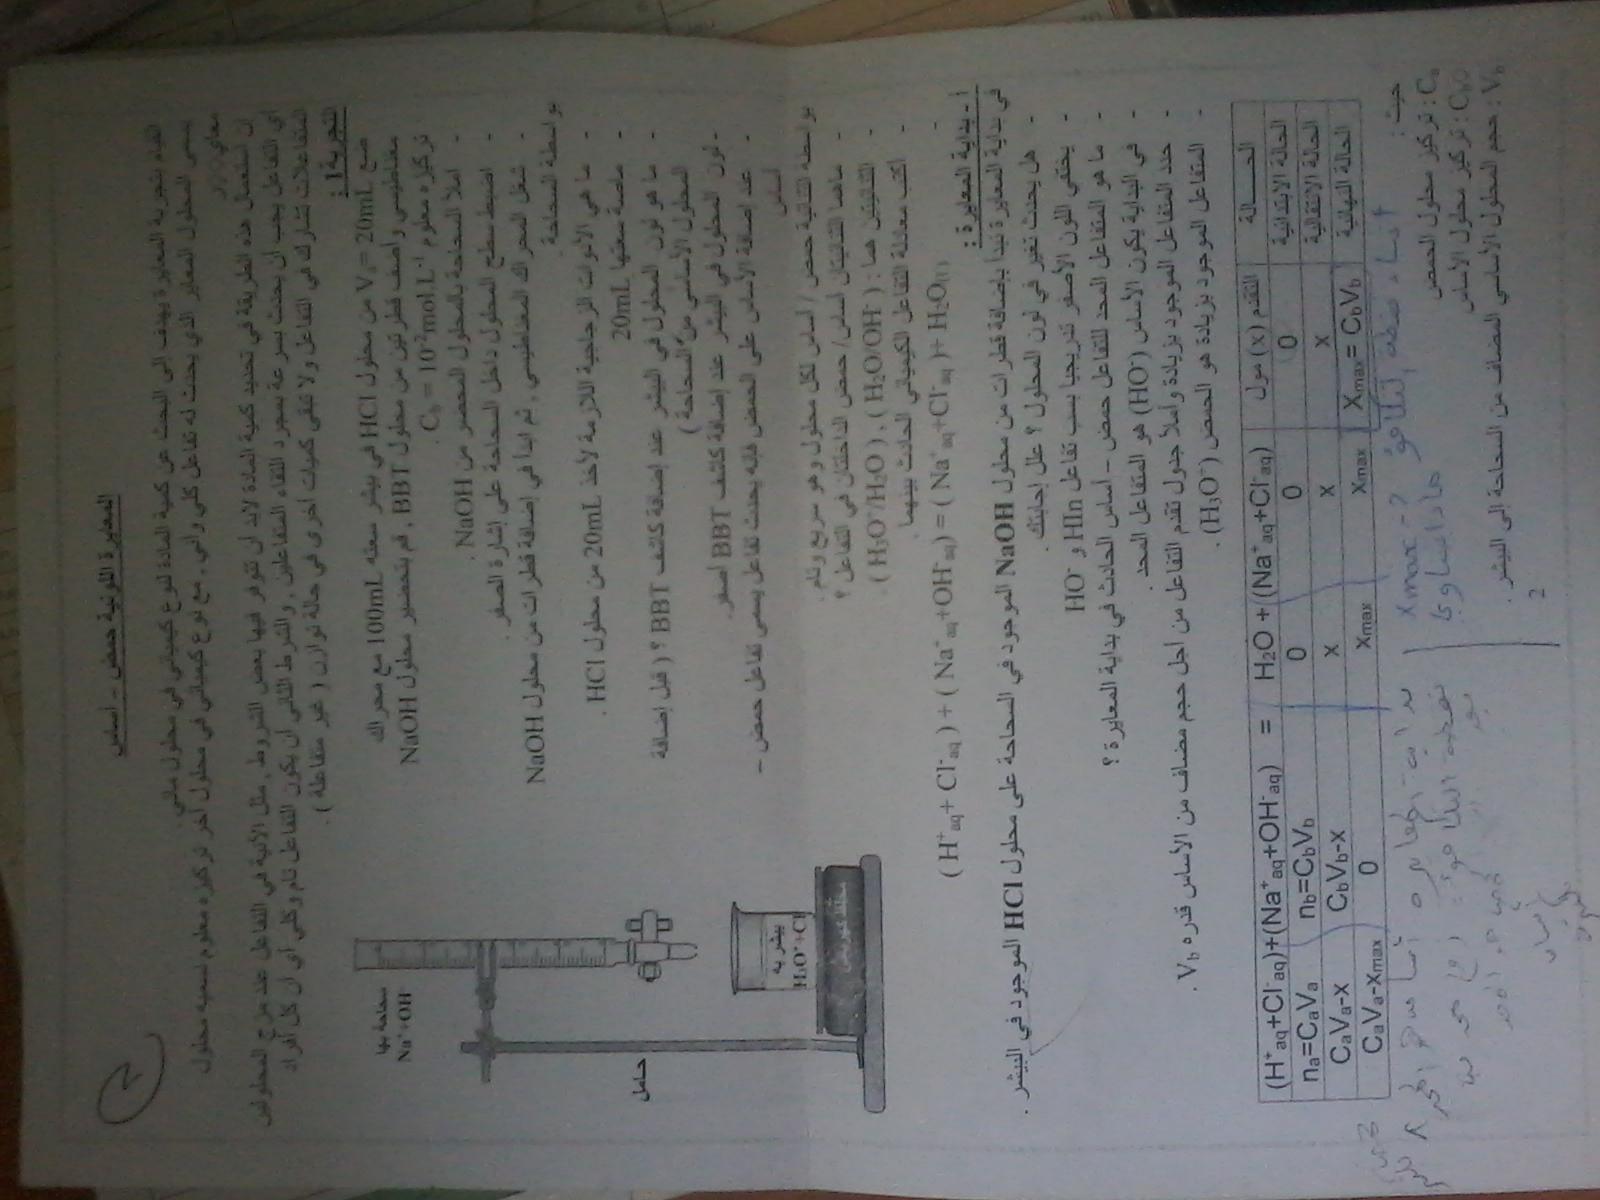 المعايرة اللونية حمض – أساس
القيام بتجربة المعايرة يهدف إلى البحث عن كمية المادة لنوع كيميائي في محلول مائي.
يسمى المحلول المعاير الذي يحدث له تفاعل كلي وآني ، مع نوع كيميائي في محلول آخر تركيزه معلوم نسميه محلول
معاير
إن استعمال هذه الطريقة في تحديد كمية المادة لابد أن تتوفر فيها بعض الشروط ، مثل الآنية في التفاعل عند مزج المحلولين
أي التفاعل يجب أن يحدث بسرعة بمجرد التقاء المتفاعلين ، والشرط الثاني أن يكون التفاعل تام وكلي أي أن كل أفراد
المتفاعلات تشارك في التفاعل ولا تبقى كميات أخرى في حالة توازن ( غير متفاعلة ) .
التجربة 1 :
ضع Va= 20mL من محلول HCl في بيشر سعته 100mL مع محراك
مغناطيسي وأضف قطرتين من محلول BBT , قم بتحضير محلول NaOH
تركيزه معلوم Cb = 10-2mol.L-1 .
- املأ السحاحة بالمحلول المحضر من NaOH .
- اضبط سطح المحلول داخل السحاحة على إشارة الصفر .
- شغل المحراك المغناطيسي ، ثم ابدأ في إضافة قطرات من محلول NaOH
بواسطة السحاحة.
- ما هي الأدوات الزجاجية اللازمة لأخذ 20mL من محلول HCl .
- ماصة سعتها 20mL
- ما هو لون المحلول في البيشر عند إضافة كاشف BBT ؟ ( قبل إضافة
المحلول الأساسي من السحاحة )
- لون المحلول في البيشر عند إضافة كاشف BBT أصفر.
- عند إضافة الأساس على الحمض فإنه يحدث تفاعل يسمى تفاعل حمض –
أساس
بواسطة الثنائية حمض / أساس لكل محلول وهو سريع وتام .
- ماهما الثنائيتان أساس/ حمض الداخلتان في التفاعل ؟
- الثنائيتين هما : ( H2O/OH- ) ، ( H3O+/H2O ) .
- اكتب معادلة التفاعل الكيميائي الحادث بينهما .
- (H+aq+ Cl-aq) + ( Na+aq+OH-aq) = ( Na+aq+Cl-aq)+ H2O(l)
سحاحة بها
Na++OH-
حامل
بيشر به
H3O++Cl-
أ - بداية المعايرة :
في بداية المعايرة نبدأ بإضافة قطرات من محلول NaOH الموجود في السحاحة على محلول HCl الموجود في البيشر .
- هل يحدث تغير في لون المحلول ؟ علل إجابتك .
- يختفي اللون الأصفر تدريجيا بسب تفاعل HIn و HO-
- ما هو المتفاعل المحد للتفاعل حمض – أساس الحادث في بداية المعايرة ؟
- في البداية يكون الأساس (HO-) هو المتفاعل المحد.
- حدد المتفاعل الموجود بزيادة واملأ جدول تقدم التفاعل من أجل حجم مضاف من الأساس قدره Vb .
- المتفاعل الموجود بزيادة هو الحمض (H3O+) .
الحــــالة التقدم (x) مول (H+aq+Cl-aq)+(Na+aq+OH-aq) = H2O + ((Na+aq+Cl-aq)
الحالة الابتدائية 0 na=CaVa nb=CbVb 0 0
الحالة الانتقالية x CaVa-x CbVb-x x x
الحالة النهائية Xmax= CbVb CaVa-xmax 0 xmax xmax
حيث :
Ca : تركيز محلول الحمض
Cb : تركيز محلول الأساس
Vb : حجم المحلول الأساسي المضاف من السحاحة إلى البيشر .
ماذا يساوي xmax ؟
2